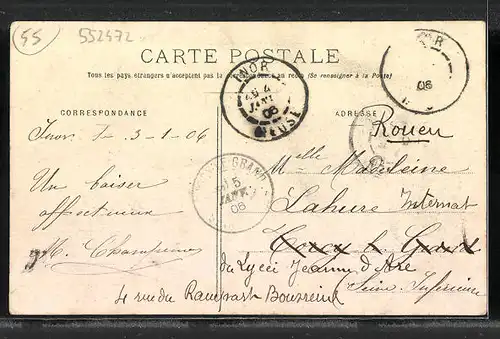 55 552472
CARTE POSTALE
Tous les pays étrangers n'acceptent pas la correspondance au recto (Se renseigner à la Poste)
CORRESPONDANCE
ADRESSE
INOR
4
JANV
06
MEUSE
Inor 3-1-06
Un baiser
affectueux
M.
GRAND
5
JANV
06
06
Rouen
Melle Madeleine
Lahure Internat
Torcy le Grand
du Lycée Jeanne d'Arc
(Seine Inférieure
4 rue du